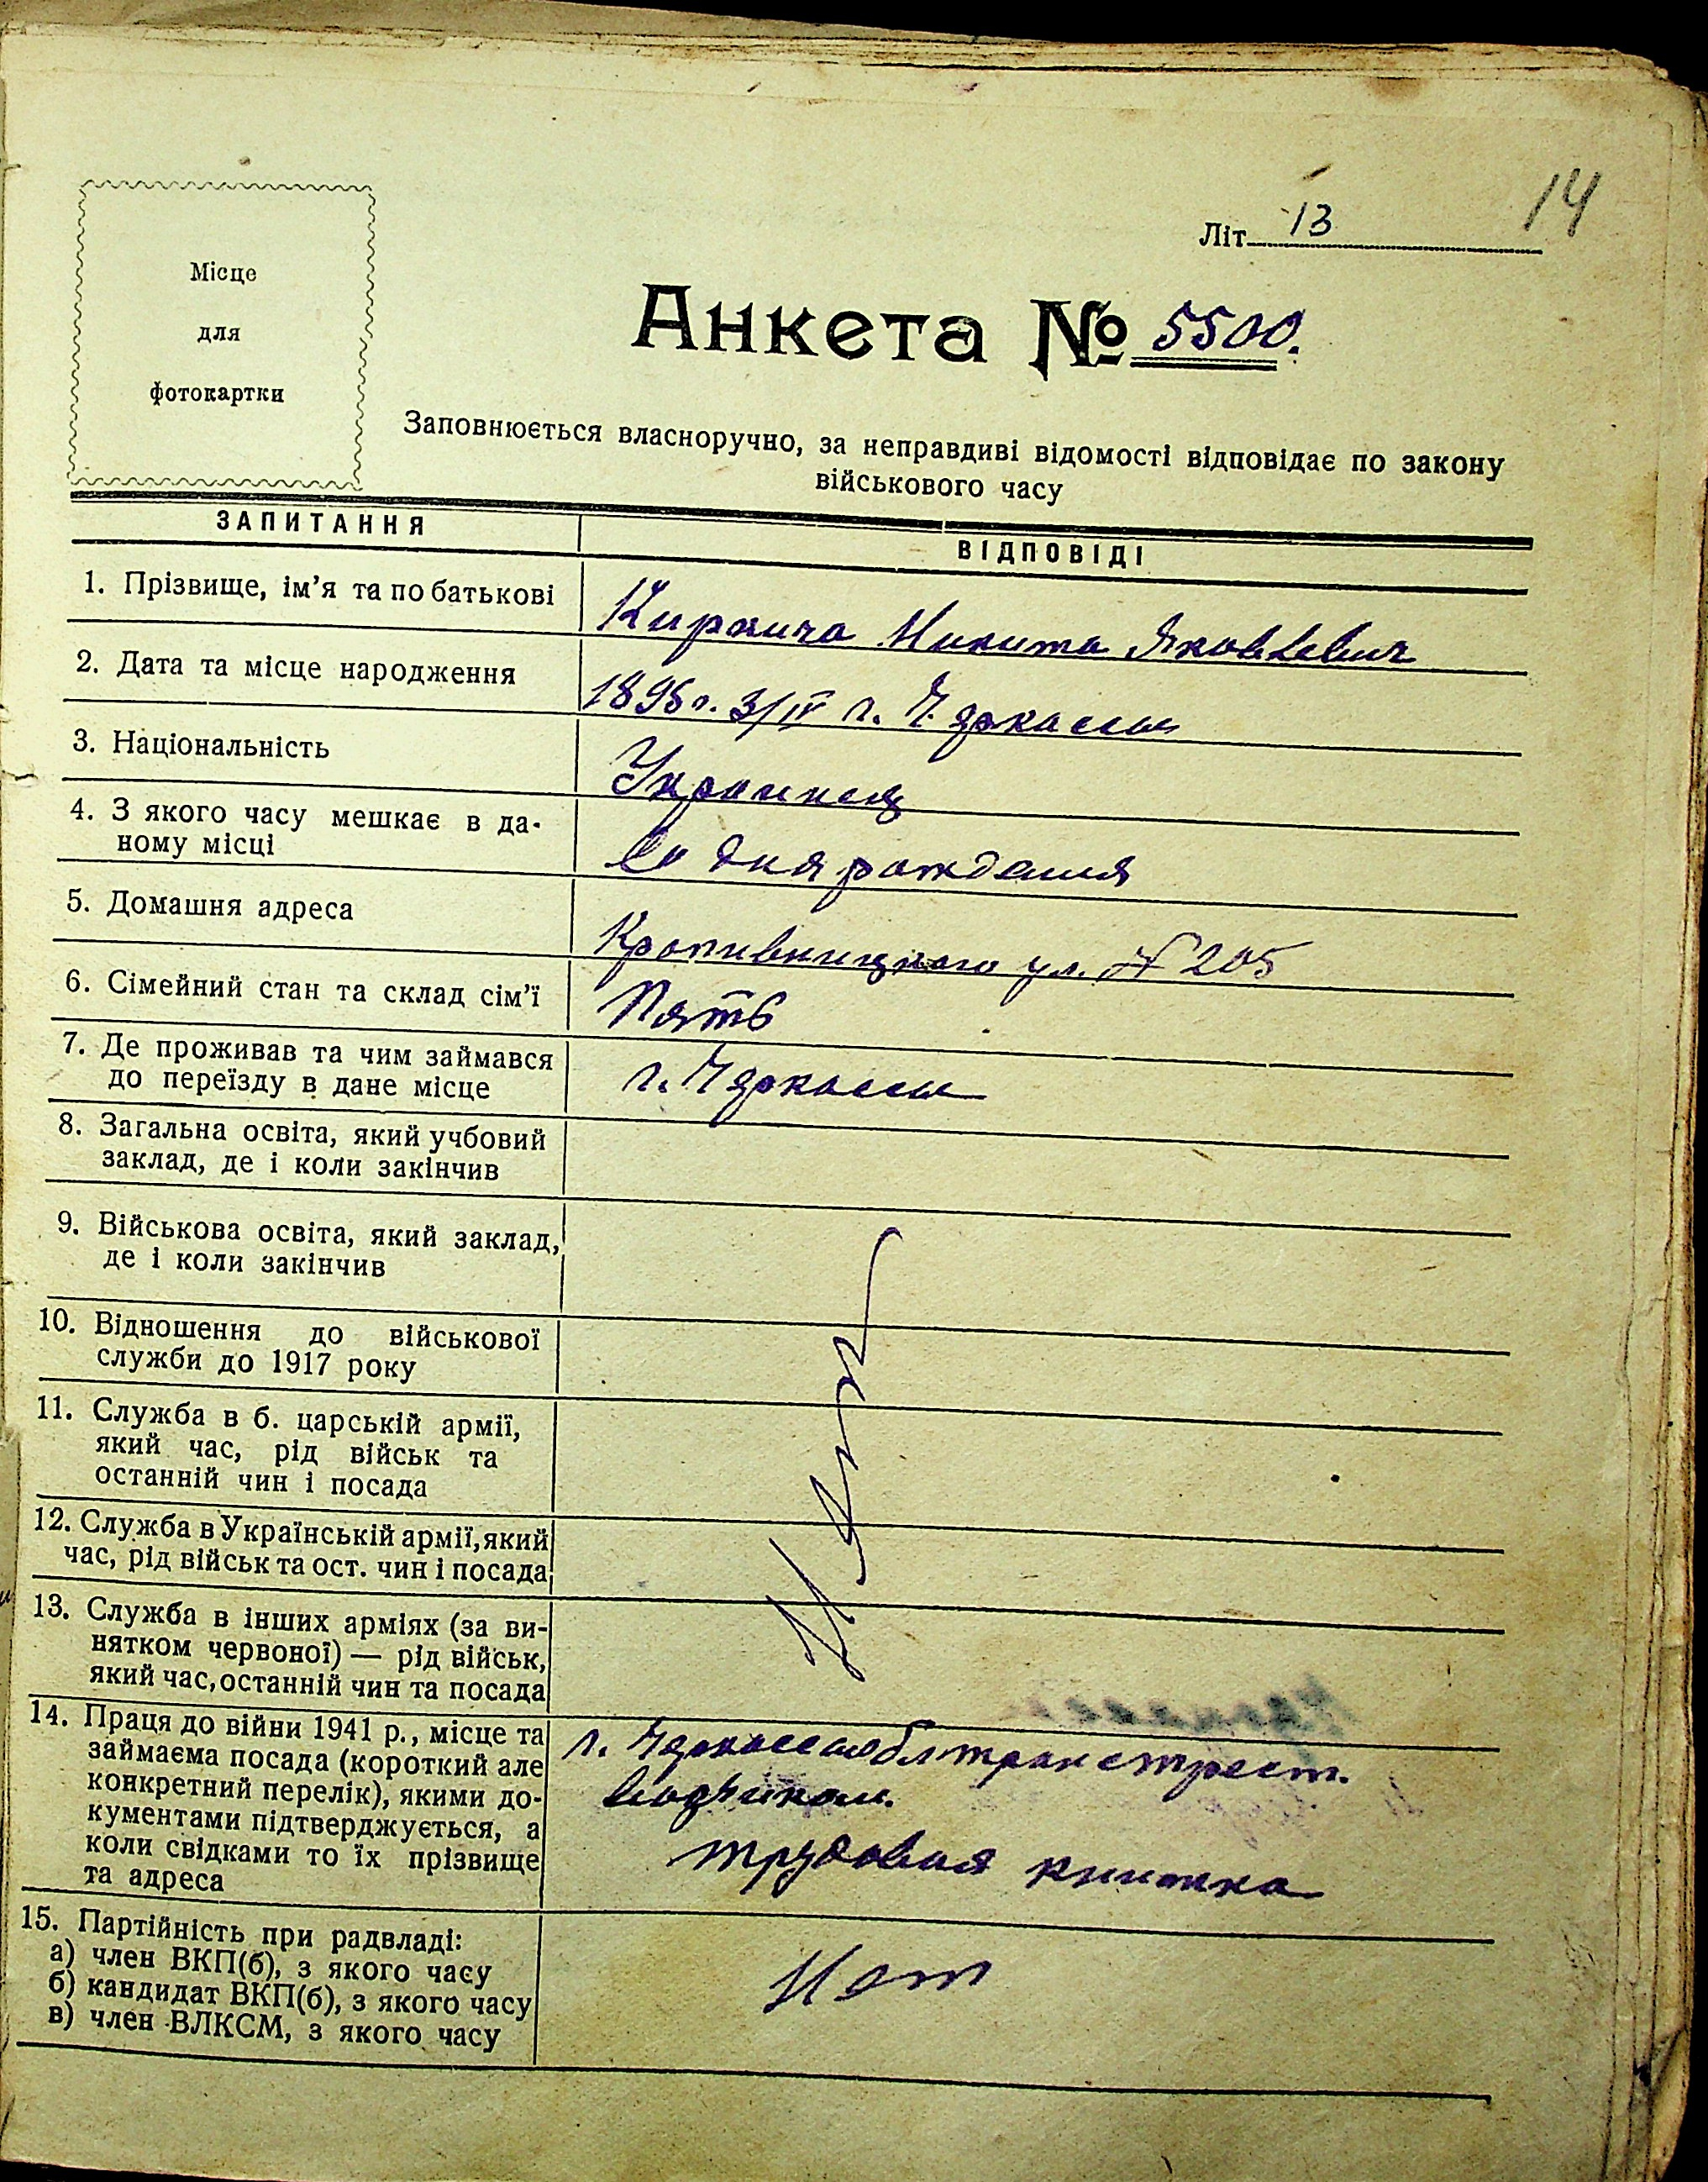 14
Літ. 13
Місце
для
фотокартки
Анкета № 5500.
Заповнюється власноручно, за неправдиві відомості відповідає по закону
військового часу
ЗАПИТАННЯ
ВІДПОВІДІ
1. Прізвище, ім’я та по батькові
Никита Яковлевич
2. Дата та місце народження
1895 г. 3/IV г. Черкассы
3. Національність
Украинец
4. З якого часу мешкає в да-
ному місці
Со дня рождения
5. Домашня адреса
Кропивницкого ул. № 205
6. Сімейний стан та склад сім’ї
Пять
7. Де проживав та чим займався
до переїзду в дане місце
г. Черкассы
8. Загальна освіта, який учбовий
заклад, де і коли закінчив
9. Військова освіта, який заклад,
де і коли закінчив
10. Відношення до військової
служби до 1917 року
11. Служба в б. царській армії,
який час, рід військ та
останній чин і посада
12. Служба в Українській армії, який
час, рід військ та ост. чин і посада
13. Служба в інших арміях (за ви-
нятком червоної) — рід військ,
який час, останній чин та посада
14. Праця до війни 1941 р., місце та
займаєма посада (короткий але
конкретний перелік), якими до-
кументами підтверджується, а
коли свідками то їх прізвище
та адреса
г. Черкассы облтранстрест.
трудовая книжка
15. Партійність при радвладі:
а) член ВКП(б), з якого часу
б) кандидат ВКП(б), з якого часу
в) член ВЛКСМ, з якого часу
Нет